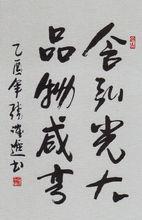 含弘光大
品物咸亨
乙酉年张海迪书